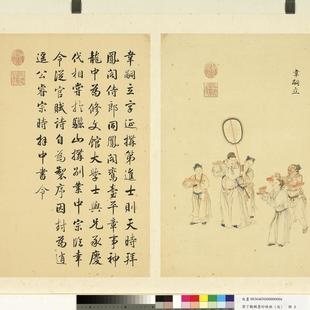 韋嗣立
韋嗣立字延搆第進士則天時拜
鳳閣侍郎同鳳閣鸞臺平章事神
龍中為修文館大學士與兄承慶
代相嘗於驪山搆別業中宗臨幸
令從官賦詩自為製序因封為逍
遙公睿宗時拜中書令